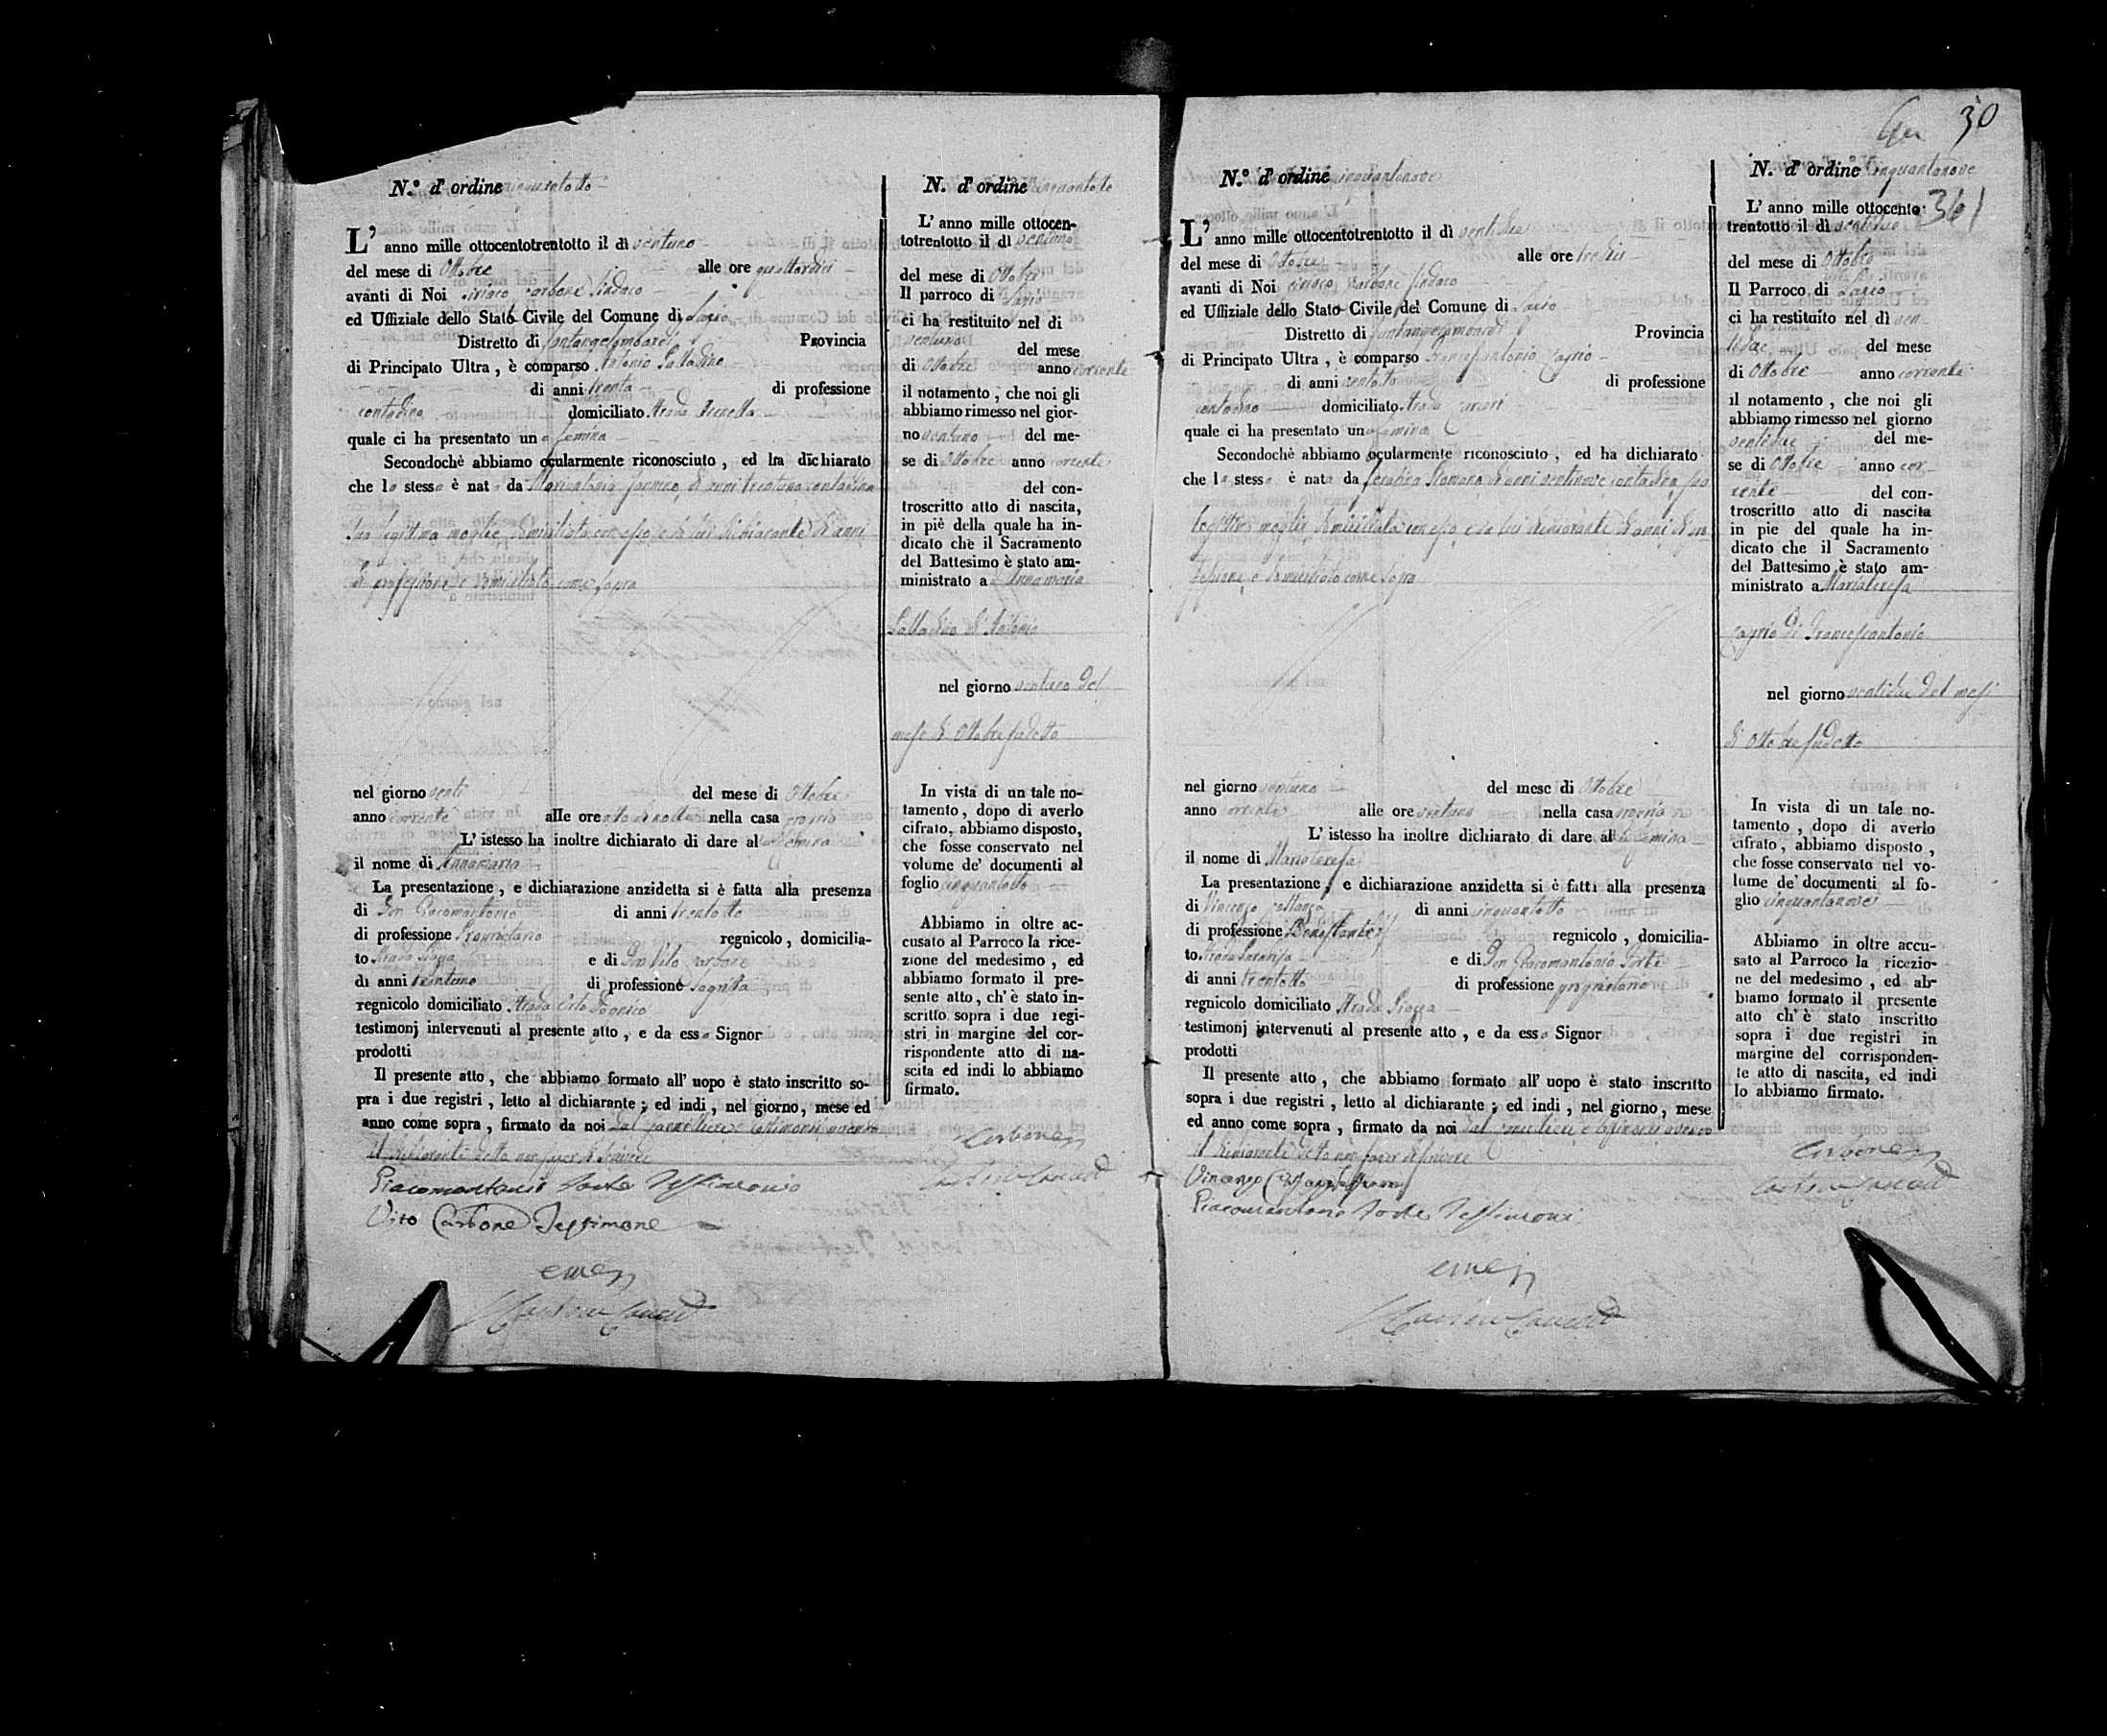 30
361
N.º d' ordine cinquantotto
L' anno mille ottocentotrentotto il dì ventuno
del mese di Ottobre alle ore quattordici
avanti di Noi Ciriaco Carbone Sindaco
ed Uffiziale dello Stato Civile del Comune di
Distretto di Santangelombardi Provincia
di Principato Ultra, è comparso Antonio Palladino
di anni trenta di professione
contadino domiciliato strada
quale ci ha presentato una femina
Secondochè abbiamo ocularmente riconosciuto, ed ha dichiarato
che la stessa è nata da Mariantonia di anni trentuno contadina
sua legittima moglie domiciliata con esso e da lui dichiarante di anni
di professione e domiciliato come sopra
nel giorno venti del mese di Ottobre
anno corrente alle ore otto di notte nella casa propria
L' istesso ha inoltre dichiarato di dare alla femina
il nome di Annamaria
La presentazione, e dichiarazione anzidetta si è fatta alla presenza
di Don Giacomantonio di anni trentotto
di professione Proprietario regnicolo, domicilia-
to strada Piazza e di Don Vito Carbone
di anni trentuno di professione
regnicolo domiciliato strada
testimonj intervenuti al presente atto, e da esso Signor
prodotti
Il presente atto, che abbiamo formato all' uopo è stato inscritto so-
pra i due registri, letto al dichiarante; ed indi, nel giorno, mese ed
anno come sopra, firmato da noi dal cancelliere e testimoni avendo
il dichiarante detto non saper di scrivere
Giacomantonio Forte Testimonio
Vito Carbone Testimone
N. d' ordine cinquantotto
L' anno mille ottocen-
totrentotto il dì ventuno
del mese di Ottobre
Il parroco di
ci ha restituito nel di
ventuno del mese
di Ottobre anno corrente
il notamento, che noi gli
abbiamo rimesso nel gior-
no ventuno del me-
se di Ottobre anno corrente
del con-
troscritto atto di nascita,
in piè della quale ha in-
dicato che il Sacramento
del Battesimo è stato am-
ministrato a Annamaria
Palladino di Antonio
nel giorno ventuno del
mese di Ottobre sudetto
In vista di un tale no-
tamento, dopo di averlo
cifrato, abbiamo disposto,
che fosse conservato nel
volume de' documenti al
foglio cinquantotto
Abbiamo in oltre ac-
cusato al Parroco la rice-
zione del medesimo, ed
abbiamo formato il pre-
sente atto, ch' è stato in-
scritto sopra i due regi-
stri in margine del cor-
rispondente atto di na-
scita ed indi lo abbiamo
firmato.
Carbone
N.º d' ordine cinquantanove
L' anno mille ottocentotrentotto il dì ventidue
del mese di Ottobre alle ore tredici
avanti di Noi Ciriaco Carbone Sindaco
ed Uffiziale dello Stato Civile del Comune di
Distretto di Santangelombardi Provincia
di Principato Ultra, è comparso Francescantonio
di anni ventotto di professione
contadino domiciliato strada
quale ci ha presentato una femina
Secondochè abbiamo ocularmente riconosciuto, ed ha dichiarato
che la stessa è nata da di anni ventinove contadina sua
legittima moglie domiciliata con esso e da lui dichiarante di anni di pro
fessione e domiciliato come sopra
nel giorno ventuno del mese di Ottobre
anno corrente alle ore ventuno nella casa propria
L' istesso ha inoltre dichiarato di dare alla femina
il nome di Mariateresa
La presentazione, e dichiarazione anzidetta si è fatta alla presenza
di Vincenzo di anni cinquantotto
di professione Benestante regnicolo, domicilia-
to strada e di Don Giacomantonio Forte
di anni trentotto di professione proprietario
regnicolo domiciliato strada Piazza
testimonj intervenuti al presente atto, e da esso Signor
prodotti
Il presente atto, che abbiamo formato all' uopo è stato inscritto
sopra i due registri, letto al dichiarante; ed indi, nel giorno, mese
ed anno come sopra, firmato da noi dal cancelliere e testimoni avendo
il dichiarante detto non saper di scrivere
Vincenzo
Giacomantonio Forte Testimoni
N. d' ordine Cinquantanove
L' anno mille ottocento
trentotto il dì ventidue
del mese di Ottobre
Il Parroco di
ci ha restituito nel dì ven
tidue del mese
di Ottobre anno corrente
il notamento, che noi gli
abbiamo rimesso nel giorno
ventidue del me-
se di Ottobre anno cor
rente del con-
troscritto atto di nascita
in pie del quale ha in-
dicato che il Sacramento
del Battesimo è stato am-
ministrato a Mariateresa
di Francescantonio
nel giorno ventidue del mese
di Ottobre sudetto
In vista di un tale no-
tamento, dopo di averlo
cifrato, abbiamo disposto,
che fosse conservato nel vo-
lume de' documenti al fo-
glio cinquantanove
Abbiamo in oltre accu-
sato al Parroco la ricezio-
ne del medesimo, ed ab-
biamo formato il presente
atto ch' è stato inscritto
sopra i due registri in
margine del corrisponden-
te atto di nascita, ed indi
lo abbiamo firmato.
Carbone